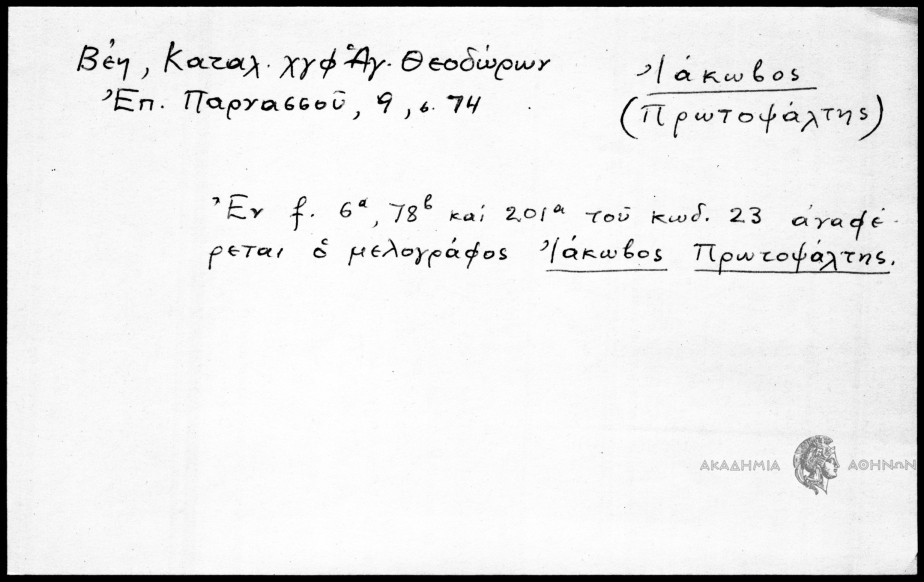 Βέη, Καταλ. χγφ Ἁγ. Θεοδώρων
Ἐπ. Παρνασσοῦ, 9, σ. 74
Ἰάκωβος
(Πρωτοψάλτης)
Ἐν f. 6α, 78β καί 201α τοῦ κωδ. 23 ἀναφέ-
ρεται ὁ μελογράφος Ἰάκωβος Πρωτοψάλτης.
ΑΚΑΔΗΜΙΑ ΑΘΗΝΩΝ